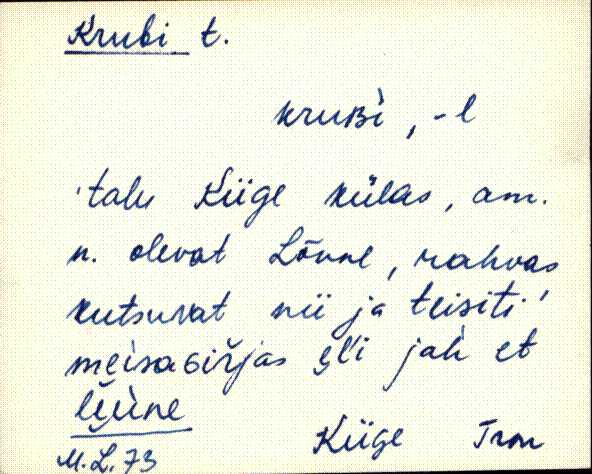 Krubi t.
kruʙì, -l
'talu Kiige külas, am.
n. olevat Lõvne, rahvas
kutsuvat nii ja teisiti'
meisaɢiŕjas el'i jah et
Kiige
M.L. 73